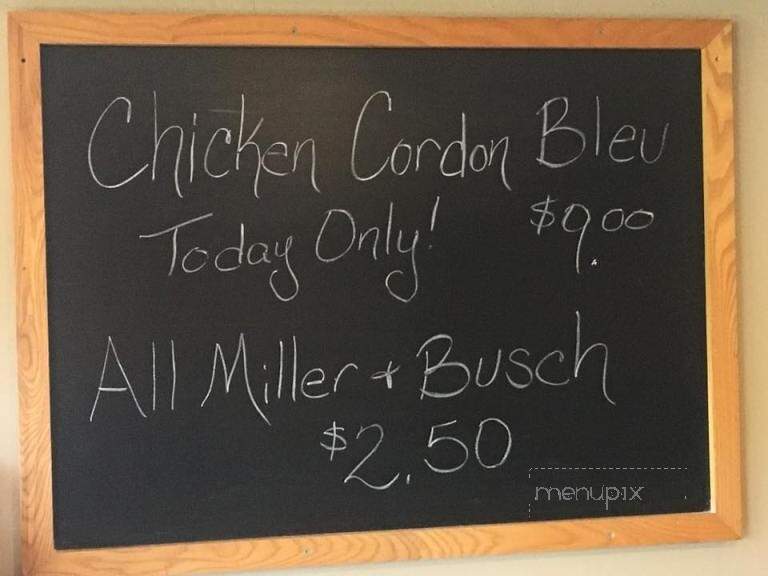 Chicken Cordon Bleu
Today Only! $9.00
All Miller + Busch
$2.50
menupix